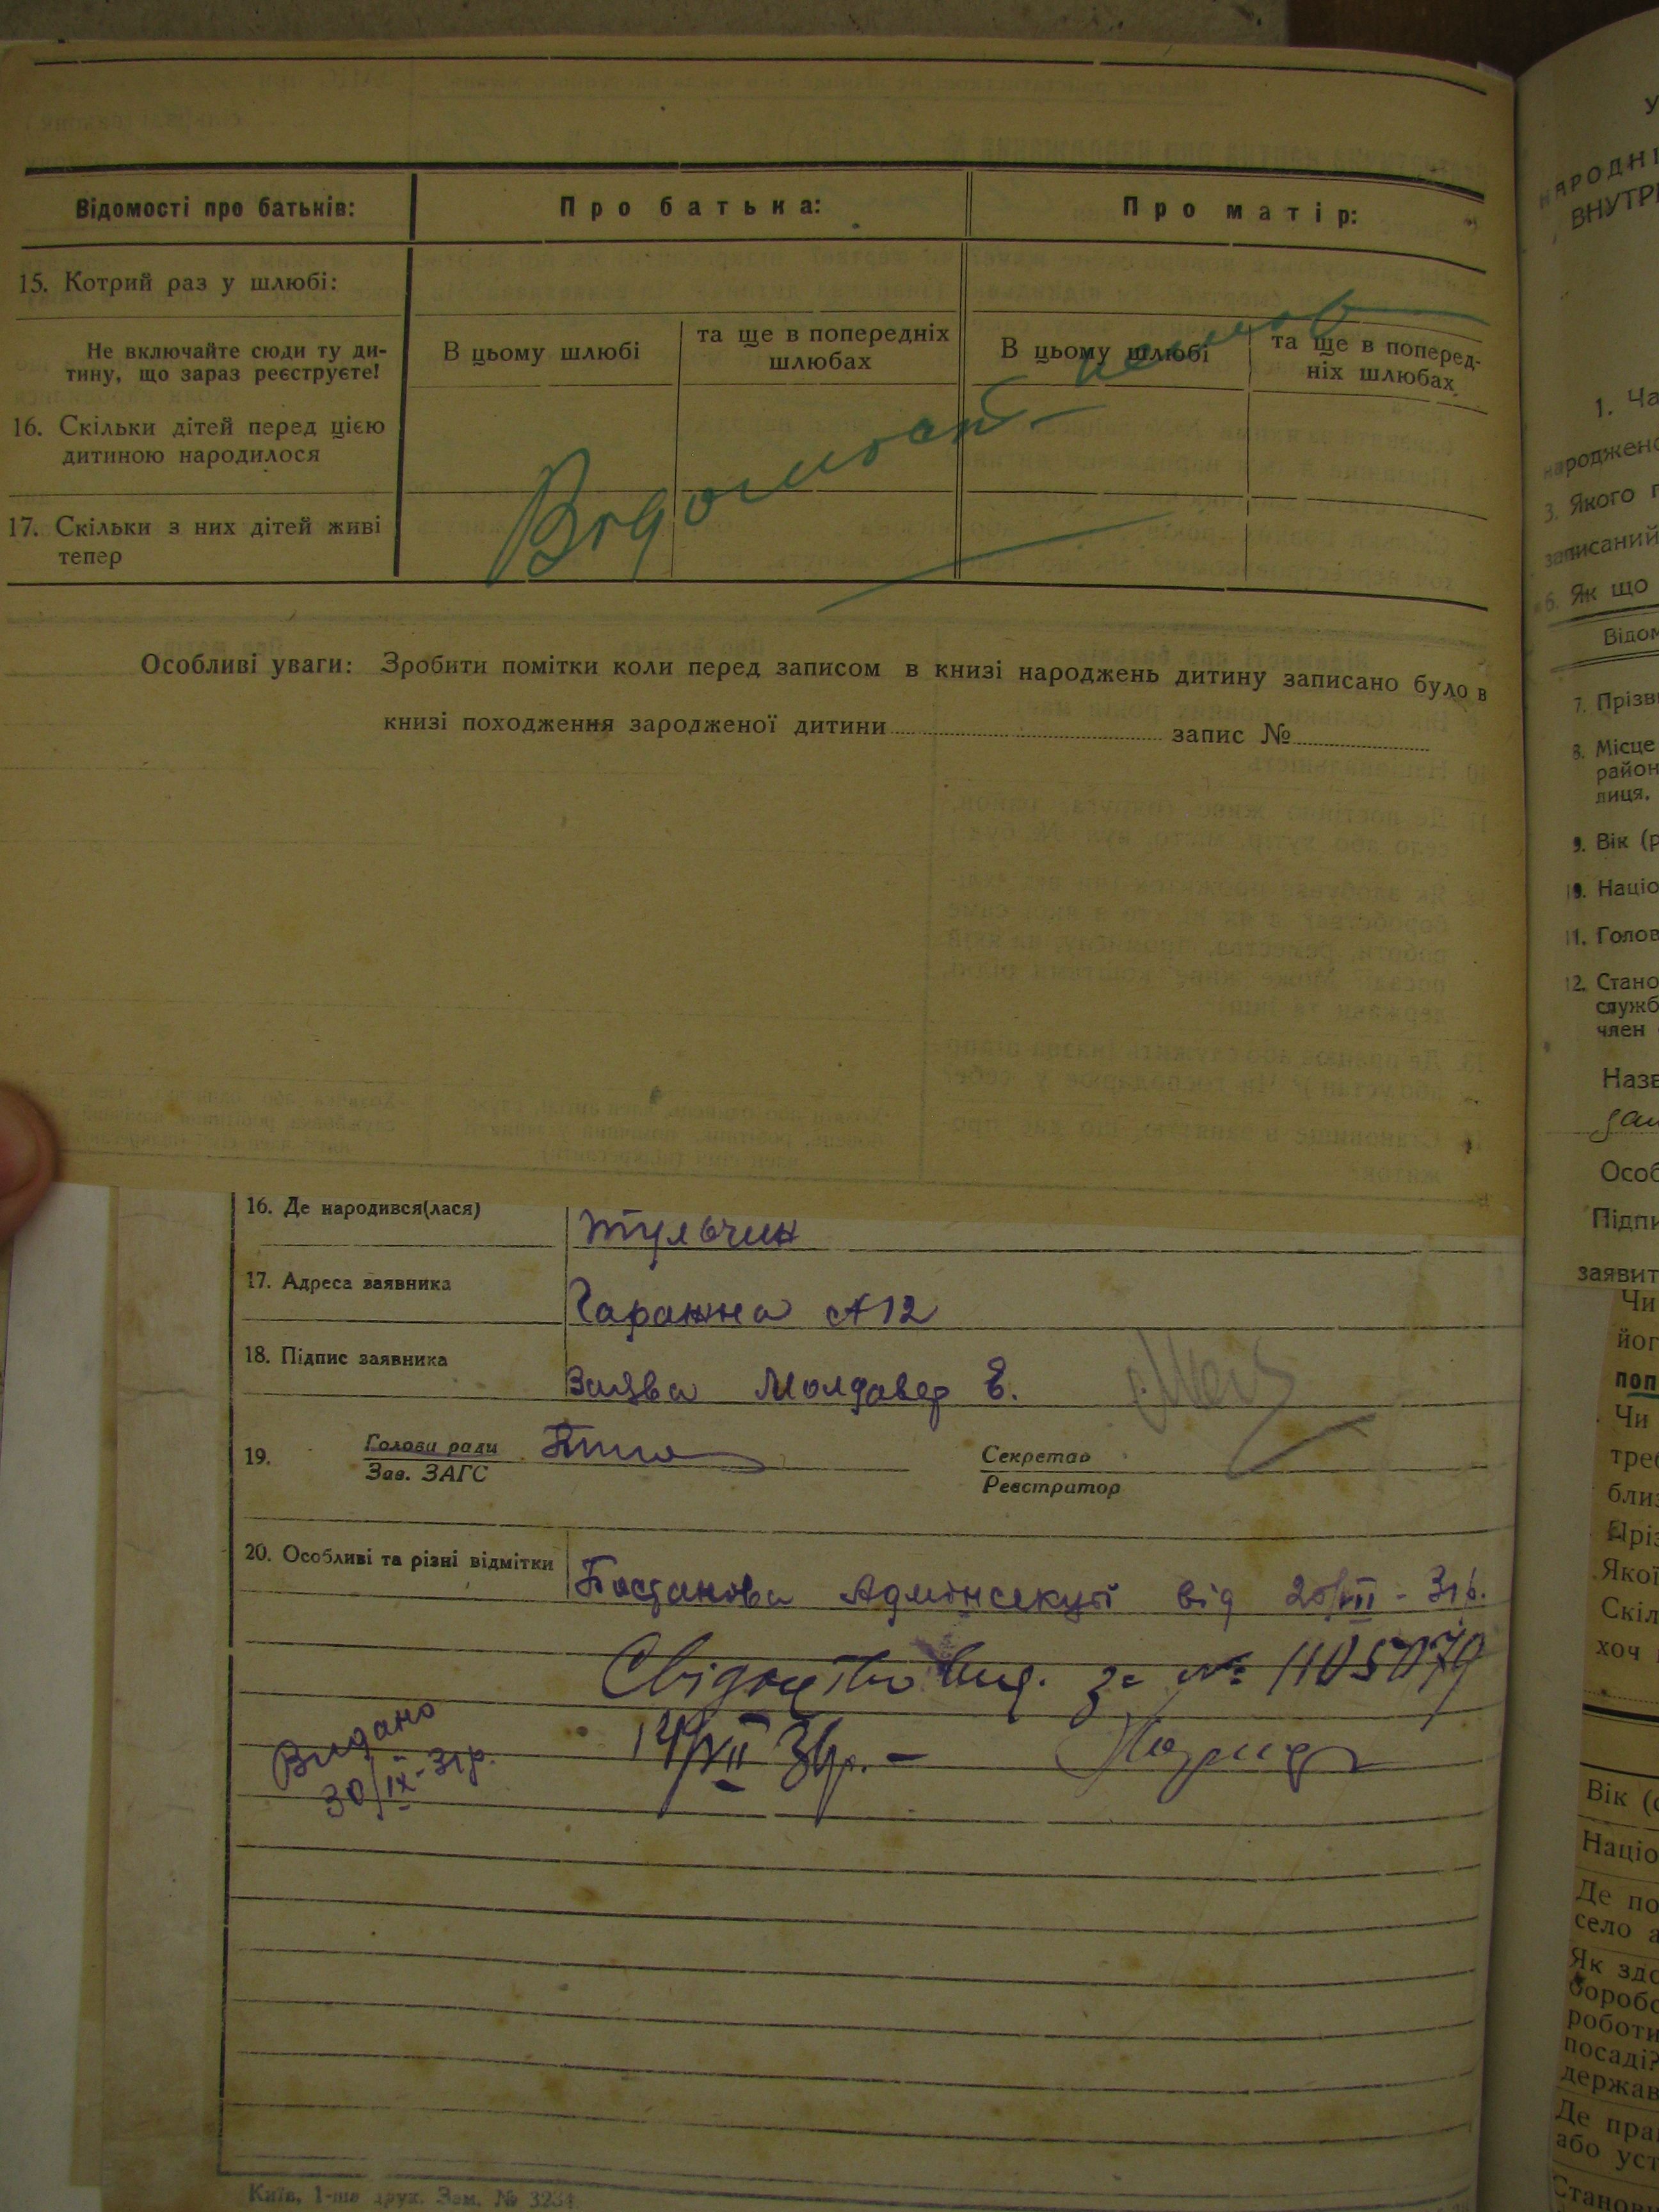 Відомості про батьків: Про батька: Про матір:
15. Котрий раз у шлюбі:
Не включайте сюди ту ди-
тину, що зараз реєструєте!
В цьому шлюбі
та ще в попередніх
шлюбах
В цьому шлюбі
та ще в поперед-
ніх шлюбах
16. Скільки дітей перед цією
дитиною народилося
17. Скільки з них дітей живі
тепер
Відомостей немає
Особливі уваги: Зробити помітки коли перед записом в книзі народжень дитину записано було в
книзі походження зародженої дитини запис №
16. Де народився(лася) Тульчин
17. Адреса заявника
18. Підпис заявника Заява Молдавер Е.
19. Голова ради
Зав. ЗАГС
Секретар
Реєстратор
20. Особливі та різні відмітки Постанова Адмінсекції від
Свідоцтво вид. за № 1105079
Видано
30/IX-31р.
Київ, 1-ша друк. Зам. №
У
НАРОДНІ
ВНУТР
1. Ча
народжено
3. Якого
записаний
6. Як що
Відом
7. Прізв
8. Місце
район
лиця.
9. Вік (р
10. Націо
11. Голов
12. Стано
служб
член
Назв
Особ
Підпи
заявит
Чи
йог
поп
Чи
треб
близ
Пріз
Якої
Скіл
хоч
Вік (с
Націо
Де по
село а
Як здо
боробо
роботи
посаді?
держав
Де пра
або уст
Станови